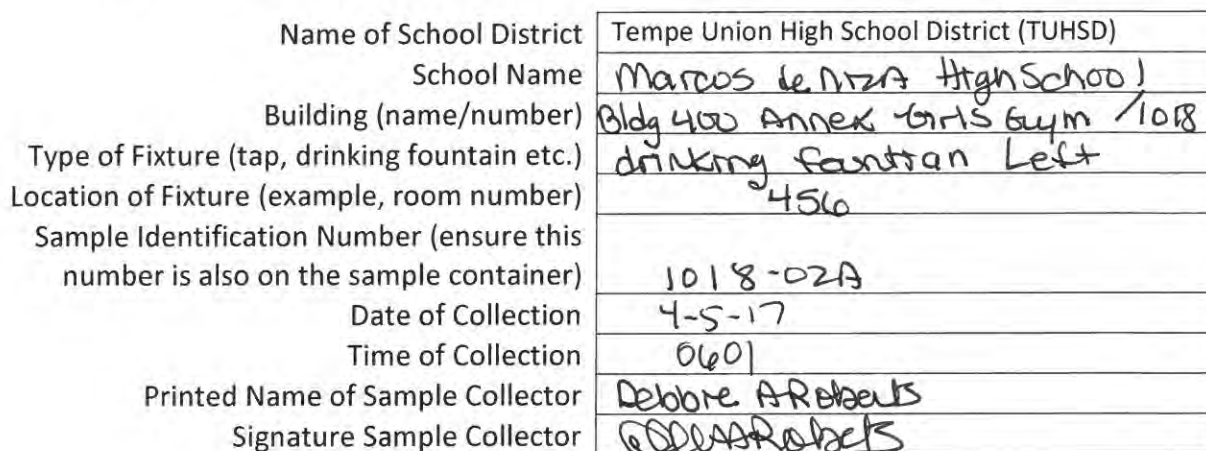 Name of School District Tempe Union High School District (TUHSD)
School Name Marcos de NizA High School
Building (name/number) Bldg 400 Annex Girls Gym /1018
Type of Fixture (tap, drinking fountain etc.) drinking fountian Left
Location of Fixture (example, room number) 456
Sample Identification Number (ensure this
number is also on the sample container) 1018-02A
Date of Collection 4-5-17
Time of Collection 0601
Printed Name of Sample Collector Debbie A Roberts
Signature Sample Collector